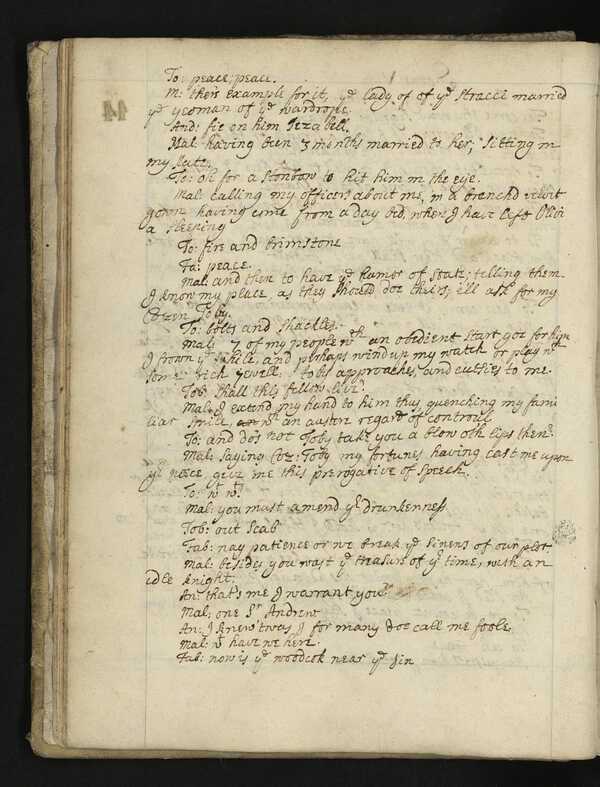 To: peace, peace.
M: ther's example for it, yᵉ lady of of yᵉ stracci married
yᵉ yeoman of yᵉ wardrope
And: fie on him Iezabell.
Mal: having been 3 months married to her, sitting in
my state.
To: oh for a stonbow to hit him in the eye.
Mal: calling my officers about me, in a brenchd velvit
gown having come from a day bed, when I have left Olivi
a sleeping
To: fire and brimstone
Fa: peace.
Mal: and then to have yᵉ humor of state; telling them
I know my place, as they should doe theirs, ill ask for my
Cozen Toby.
To: bolts and shackles.
Mal: 7 of my people wᵗʰ an obedient start goe for him
I frown yᵉ while and perhaps wind up my watch or play wᵗʰ
some rich jewell: toby approaches, and cutsies to me.
Tob: shall this fellow live?
Mal: I extend my hand to him thus, quenching my fami
liar smile, wᵗʰ an austere regard of controul
To: and do's not Toby take you a blow oth lips then?
Mal: saying Coz: Toby my fortunes having cast me upon
yʳ neece, give me this prerogative of speech.
To: wᵗ wᵗ?
Mal: you must amend yʳ drunkenness
Tob: out scab
Fab: nay patience or we break yᵉ sinews of our plot
Mal: besides you wast yᵉ treasure of yʳ time, with an
idle knight.
An: that's me I warrant you
Mal: one Sʳ Andrew
An: I knew 'twas I for many doe call me foole
Mal: wᵗ have we here
Fab: now is yᵉ woodcok near yᵉ gin